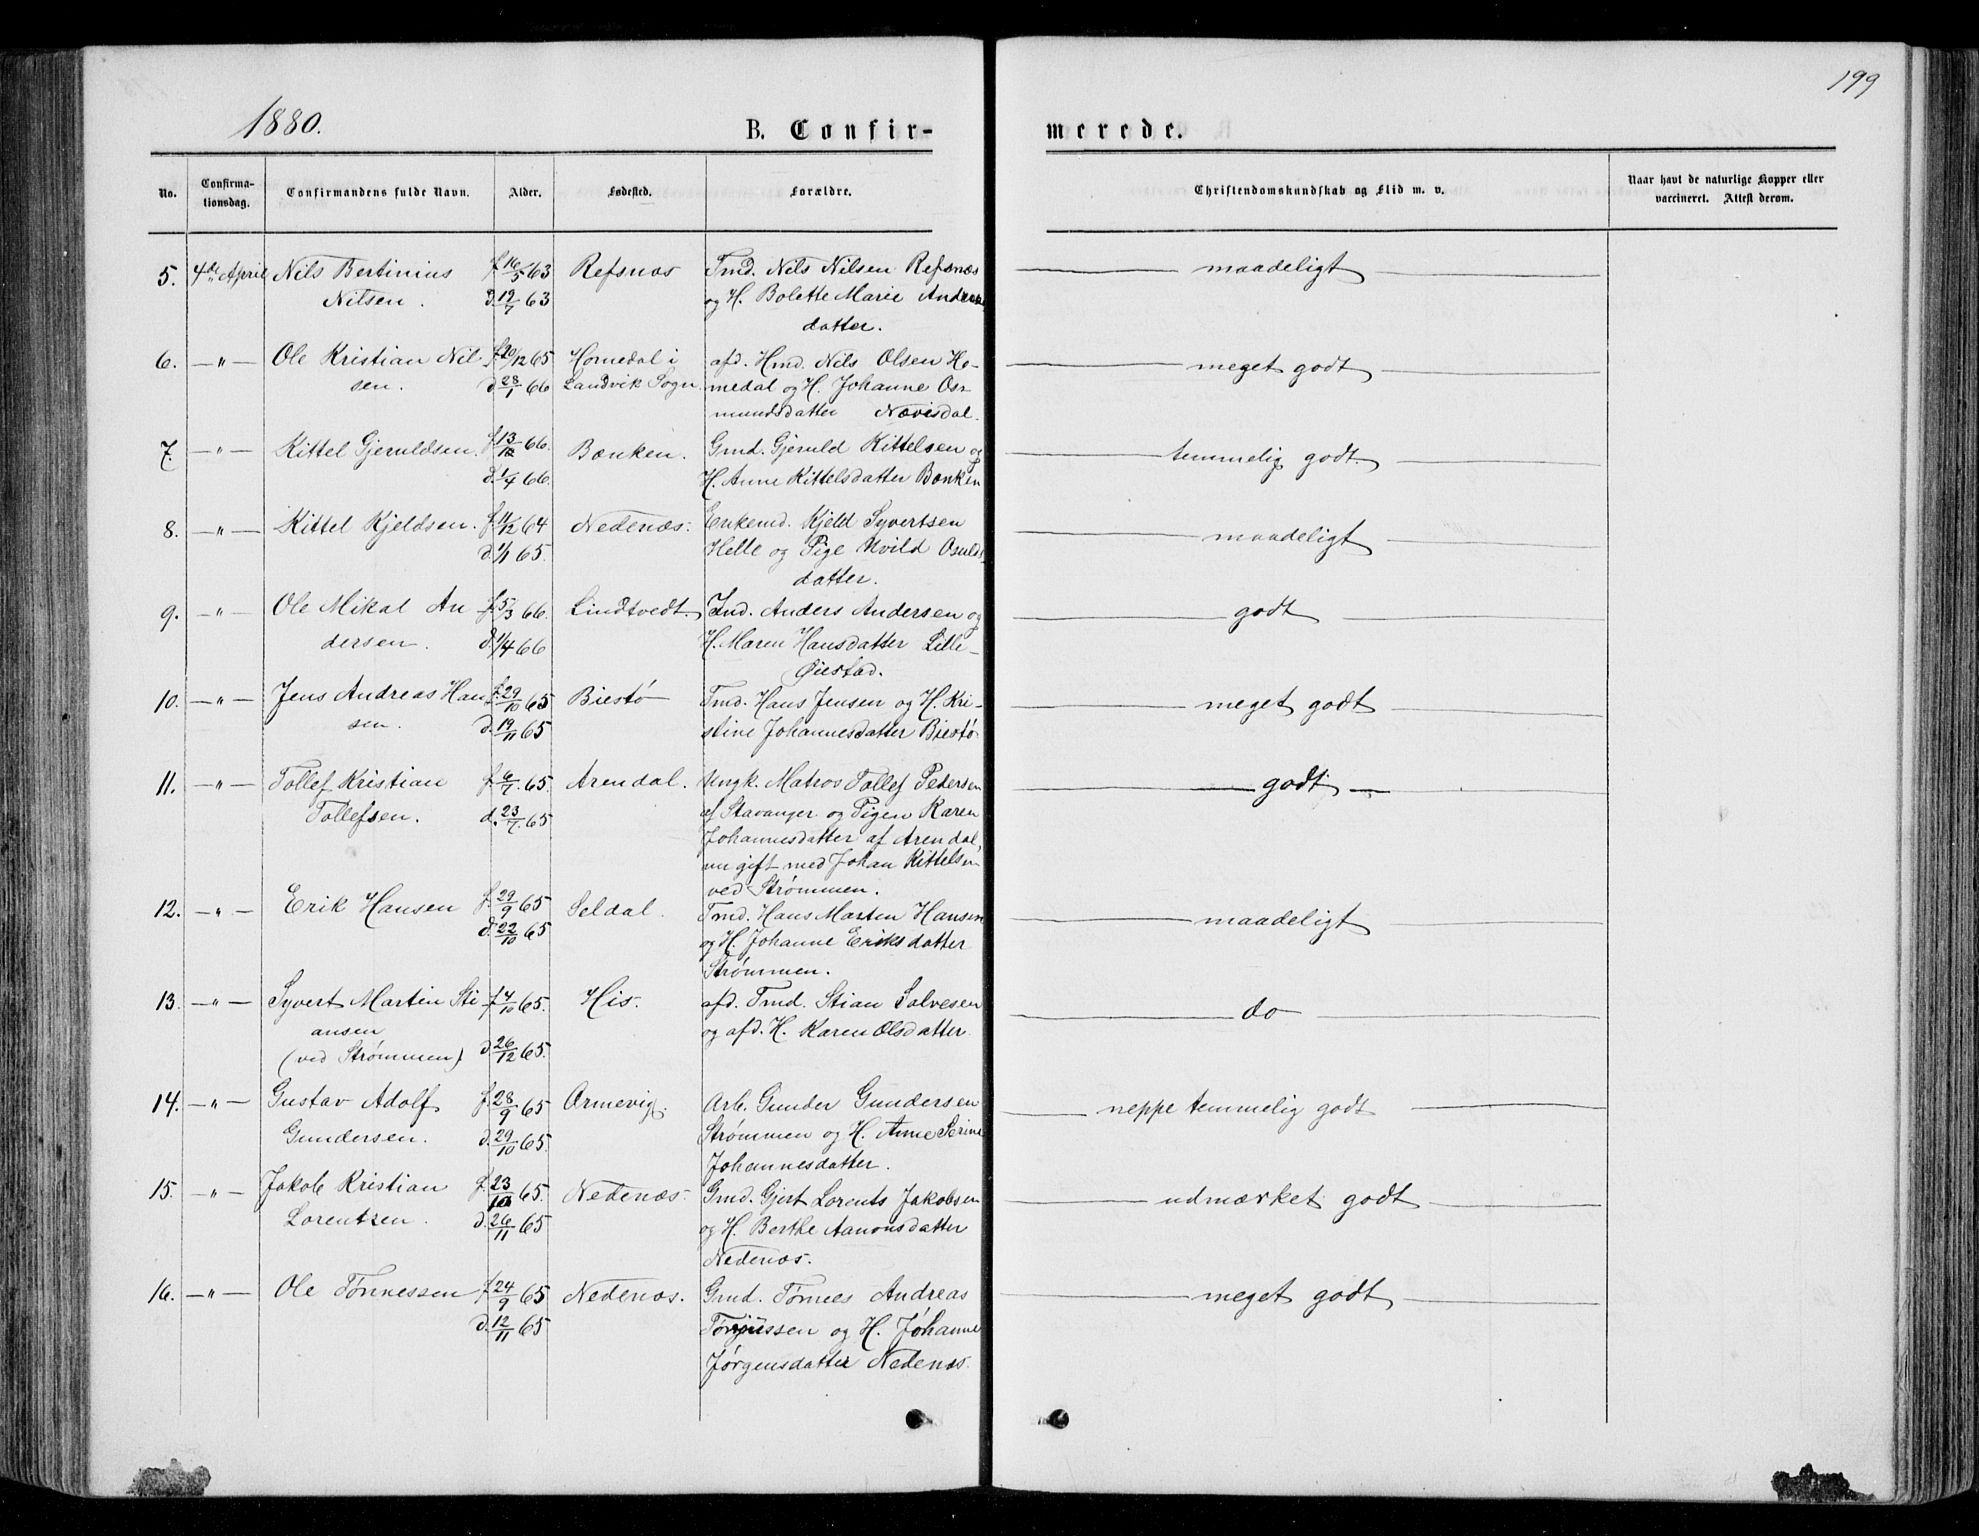 199
1880.
B. Confirmerede.
No. Confirmationsdag. Confirmandens fulde Navn. Alder. Fødested. Forældre. Christendomskundskab og Flid m. v. Naar havt de naturlige Kopper eller vaccineret. Attest derom.
5. 4de April Nils Bertinius f. 16/5 63 Refsnæs Tmd. Nils Nilsen Refsnæs maadeligt
Nilsen. d. 12/7 63 og H. Bolette Marie Anders
datter.
6. —"— Ole Kristian Nil f. 20/12 65 Homedal i afd. Hmd. Nils Olsen Ho- meget godt
sen. d. 28/1 66 Landvik Sogn. medal og H. Johanne Os-
mundsdatter Nævisdal.
7. —"— Kittel Gjeruldsen. f. 13/12 66. Bænken. Gmd. Gjeruld Kittelsen og temmelig godt.
d. 1/4 66. H. Anne Kittelsdatter Bænken
8. —"— Kittel Kjeldsen. f. 11/12 64 Nedenæs. Enkemd. Kjeld Syvertsen maadeligt
d. 1/1 65. Helle og Pige Hvild Osulds
datter.
9. —"— Ole Mikal An f. 5/3 66. Lindtvedt. Ind. Anders Andersen og godt
dersen. d. 1/4 66 H. Maren Hansdatter Lille-
Øiestad.
10. —"— Jens Andreas Han f. 29/10 65 Biestø Tmd. Hans Jensen og H. Kri- meget godt
sen. d. 19/11 65 stine Johannesdatter Biestø.
11. —"— Tollef Kristian f. 6/7. 65. Arendal. Ungk. Matros Tollef Pedersen godt
Tollefsen. d. 23/7. 65 af Stavanger og Pigen Karen
Johannesdatter af Arendal,
nu gift med Johan Kittelsen
ved Strømmen.
12. —"— Erik Hansen f. 29/9 65 Seldal. Tmd. Hans Marten Hansen maadeligt
d. 22/10 65 og H. Johanne Eriksdatter
Strømmen.
13. —"— Syvert Martin Sti f. 4/10 65. His. afd. Tmd. Stian Salvesen do
ansen og afd. H. Karen Olsdatter
(ved Strømmen) d. 26/12 65.
14. —"— Gustav Adolf f. 28/9 65 Ormevig. Arb. Gunder Gundersen neppe temmelig godt
Gundersen. d. 29/10 65. Strømmen og H. Anne Serine
Johannesdatter.
15. —"— Jakob Kristian f. 23/10 65. Nedenæs. Gmd. Gjert Lorents Jakobsen udmærket godt
Lorentzen. d. 26/11 65 og H. Berthe Aanonsdatter
Nedenæs.
16. —"— Ole Tønnessen f. 24/9 65 Nedenæs. Gmd. Tønnes Andreas meget godt
d. 12/11 65 Tønjussen og H. Johanne
Jørgensdatter Nedenæs.